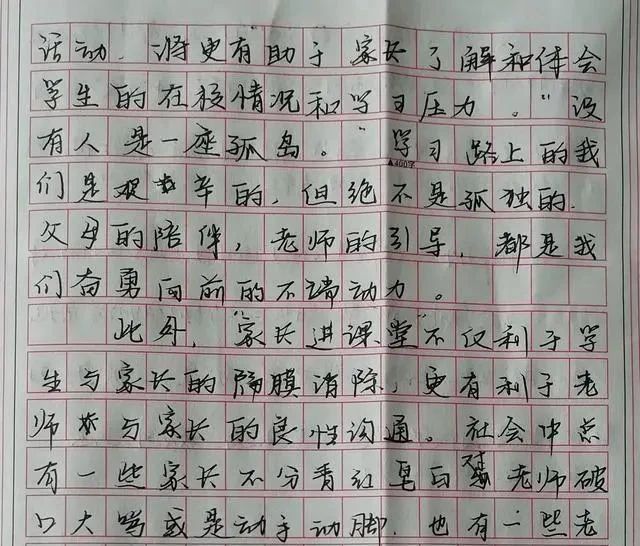 活动，将更有助于家长了解和体会
学生的在校情况和学习压力。“没
有人是一座孤岛。”学习路上的我
▲400字
们是艰辛的，但绝不是孤独的.
父母的陪伴，老师的引导，都是我
们奋勇向前的不端动力。
此外，“家长进课堂”不仅利于学
生与家长的隔膜消除，更有利于老
师与家长的良性沟通。社会中总
有一些家长不分青红皂白对老师破
口大骂或是动手动脚.也有一些老